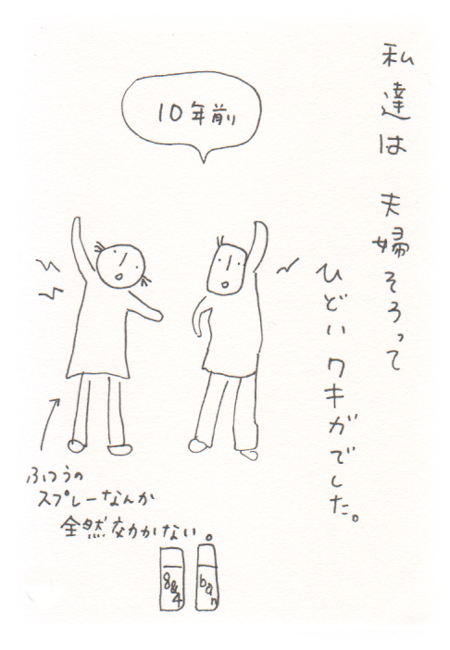 私達は 夫婦そろって
ひどいワキガでした。
10年前
ふつうの
スプレーなんか
全然効かない。
8&4
ban